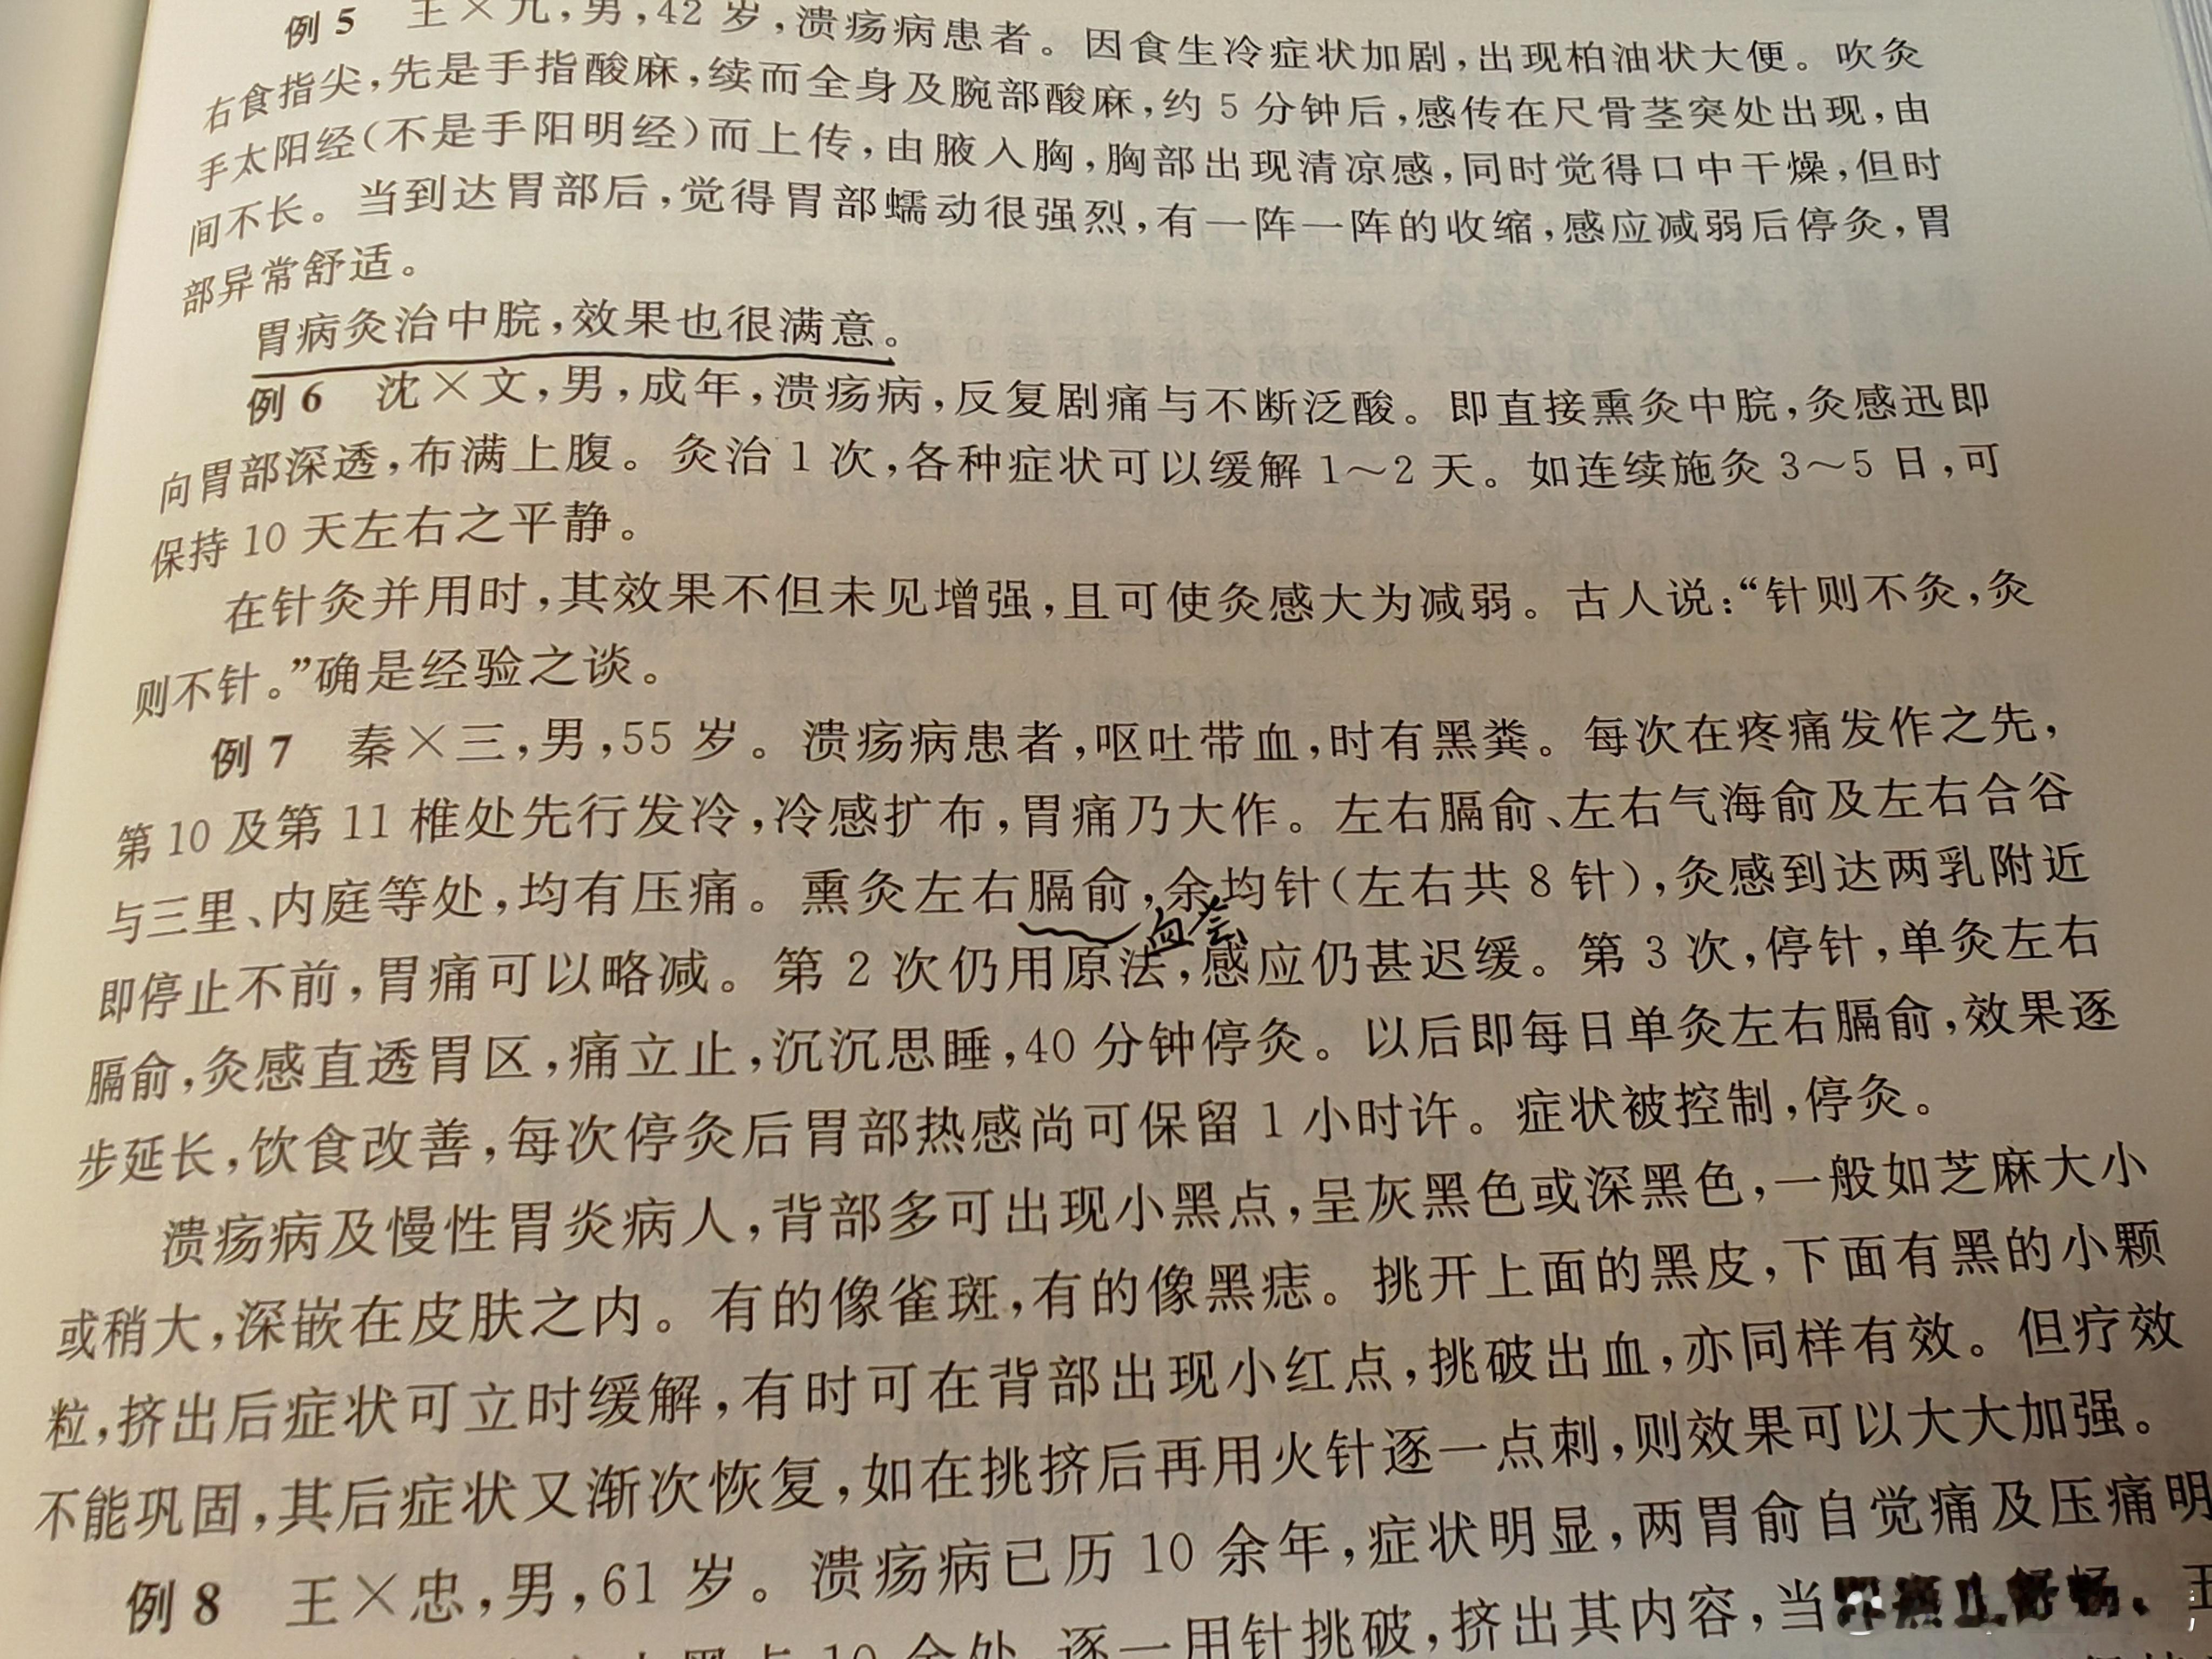 例5 王×九,男,42岁,溃疡病患者。因食生冷症状加剧,出现柏油状大便。吹灸
右食指尖,先是手指酸麻,续而全身及腕部酸麻,约5分钟后,感传在尺骨茎突处出现,由
手太阳经(不是手阳明经)而上传,由腋入胸,胸部出现清凉感,同时觉得口中干燥,但时
间不长。当到达胃部后,觉得胃部蠕动很强烈,有一阵一阵的收缩,感应减弱后停灸,胃
部异常舒适。
胃病灸治中脘,效果也很满意。
例6 沈×文,男,成年,溃疡病,反复剧痛与不断泛酸。即直接熏灸中脘,灸感迅即
向胃部深透,布满上腹。灸治1次,各种症状可以缓解1~2天。如连续施灸3~5日,可
保持10天左右之平静。
在针灸并用时,其效果不但未见增强,且可使灸感大为减弱。古人说:“针则不灸,灸
则不针。”确是经验之谈。
例7 秦×三,男,55岁。溃疡病患者,呕吐带血,时有黑粪。每次在疼痛发作之先,
第10及第11椎处先行发冷,冷感扩布,胃痛乃大作。左右膈俞、左右气海俞及左右合谷
与三里、内庭等处,均有压痛。熏灸左右膈俞,余均针(左右共8针),灸感到达两乳附近
血会
即停止不前,胃痛可以略减。第2次仍用原法,感应仍甚迟缓。第3次,停针,单灸左右
膈俞,灸感直透胃区,痛立止,沉沉思睡,40分钟停灸。以后即每日单灸左右膈俞,效果逐
步延长,饮食改善,每次停灸后胃部热感尚可保留1小时许。症状被控制,停灸。
溃疡病及慢性胃炎病人,背部多可出现小黑点,呈灰黑色或深黑色,一般如芝麻大小
或稍大,深嵌在皮肤之内。有的像雀斑,有的像黑痣。挑开上面的黑皮,下面有黑的小颗
粒,挤出后症状可立时缓解,有时可在背部出现小红点,挑破出血,亦同样有效。但疗效
不能巩固,其后症状又渐次恢复,如在挑挤后再用火针逐一点刺,则效果可以大大加强。
例8 王×忠,男,61岁。溃疡病已历10余年,症状明显,两胃俞自觉痛及压痛明
黑点10余处,逐一用针挑破,挤出其内容,当